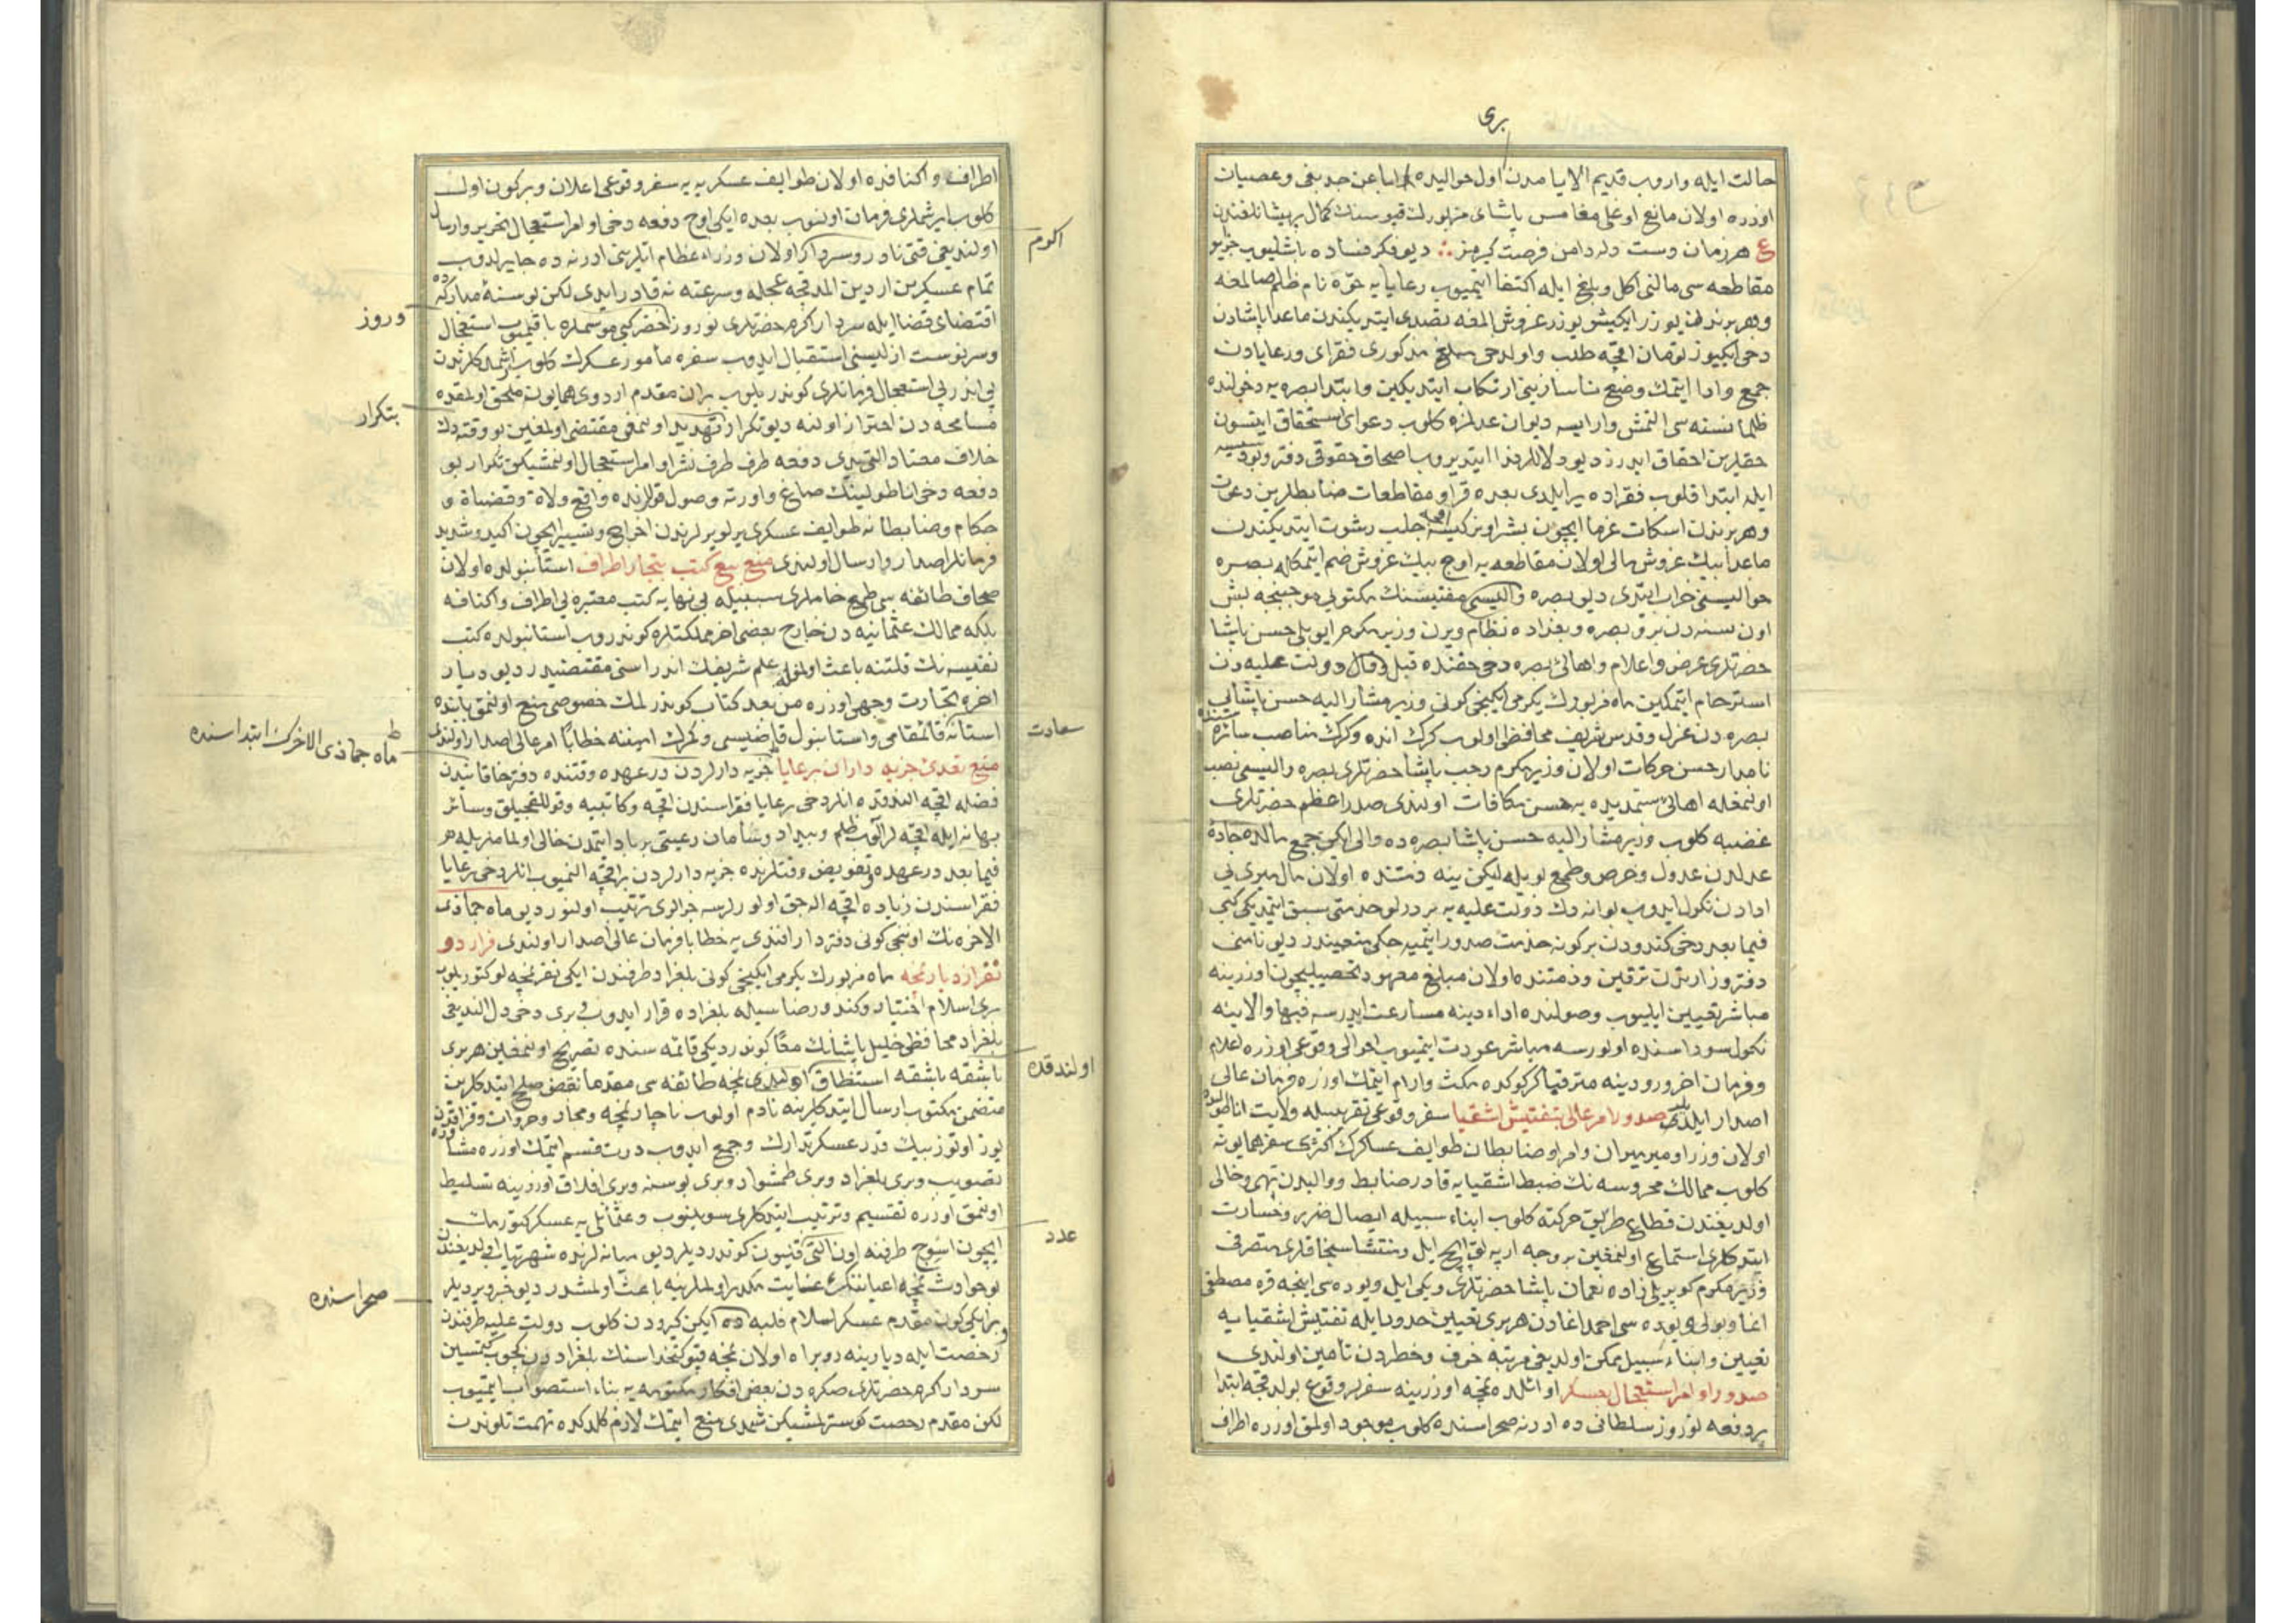 بری
حالت ایله واروب قدیم الایامدن اول حوالیده اباعن جد بغی و عصیان
اوزره اولان مانع اوغلی مغامس پاشای مزبورك قپوسنك کمال پریشانلغندن
ع هر زمان دست دلە دامن فرصت کیرمز دیو فکر فساده باشلیوب
مقاطعه سی مالنی اکل و بلغ ایله اکتفا ایتمیوب رعایایه نام ظلم صالمغه
و هر برندن یوزر ایکیشر یوزر غروش المغه تصدی ایتدیکندن ماعدا پاشادن
دخی ایکیوز تومان اقچه طلب و اولدخی مبلغ مذکوری فقرای و رعایادن
جمع و ادا ایتمك وضع ناسازینی ارتکاب ایتدیکین و ابتدا بصره یه دخولنده
ظلما نسنه سی النمش وار ایسه دیوان عدلمزه کلوب دعوای استحقاق ایتسون
حقلرین احقاق ایدرز دیو دلاللر ندا ایتدیروب اصحاب حقوقی دفتر
ایله ابتدا قلوب فقراده یر ایلدی بعده قرا و مقاطعات ضابطلرین دعوت
و هر برندن اسکات غرما ایچون بشر اونر کیسه اقچه جلب رشوت ایتدیکندن
ماعدا بیك غروش مالی اولان مقاطعه یه اوچ بیك غروش ضم ایتمکله بصره
حوالیسنی خراب ایتدی دیو بصره والیسی مفتیسنك مکتوبی موجبنجه بش
اون سنه دن برو بصره و بغداده نظام ویرن وزیر مکرم ایوبلی حسن پاشا
حضرتلری عرض و اعلام و اهالی بصره دخی حقنده قیل و قال دولت علیه دن
استرحام ایتمکین ماه مزبورك یکرمی ایکینجی کونی وزیر مشار الیه حسن پاشایی
بصره دن عزل و قدس شریف محافظی اولوب کرك انده و کرك مناصب سائره سنده
نامدار حسن حرکات اولان وزیر مکرم رجب پاشا حضرتلری بصره والیسی نصب
اولنمغله اهالیء ستمدیده یه حسن مکافات اولندی صدر اعظم حضرتلری
غضبه کلوب وزیر مشار الیه حسن پاشا بصره ده والی ایکن جمع مالده جادهٔ
عدلدن عدول و حرص و طمع بویله لیکن ینه ذمتنده اولان مال میری یی
ادادن نکول ایدوب بو انه دك دولت علیه یه بر درلو خدمتی سبق ایتمدیکی کبی
فیما بعد دخی کندودن بر کونه خدمت صدور ایتمیه جکی متعیندر دیو نامنی
دفتر وزارتدن ترقین و ذمتنده اولان مبالغ معهود تحصیلیچون اوزرینه
مباشر تعیین ایلیوب وصولنده اداء دینه مسارعت ایدرسه فبها و الا ینه
نکول سوداسنده اولورسه مباشر عودت ایتمیوب احوالی وقوعی اوزره اعلام
و فرمان اخر ورودینه مترقبا کرکوکده مکث و ارام ایتمك اوزره فرمان عالی
اصدار ایلدیلر صدور امر عالی بتفتیش اشقیا سفر وقوعی تقریبیله ولایت اناطولیده
اولان وزرا و میر میران و امرا و ضابطان طوایف عساکرك اکثری سفر همایونه
کلوب ممالك محروسه نك ضبط اشقیایه قادر ضابط و والیدن تهی و خالی
اولدیغندن قطاع طریق حرکته کلوب ابناء سبیله ایصال ضرر و خسارت
ایتدکلری استماع اولنمغین بر وجه ارپه لق ایچ ایل و منتشا سنجاقلری متصرفی
وزیر مکرم کوپریلی زاده نعمان پاشا حضرتلری و یکی ایل ویوده سی اینجه قره مصطفی
اغا و بولی ویوده سی احمد اغادن هر بری تعیین حدود ایله تفتیش اشقیایه
تعیین و ابناء سبیل ممکن اولدیغی مرتبه خوف و خطردن تأمین اولندی
صدور اوامر استعجال عسکر اوائلده نمچه اوزرینه سفر وقوع بولدقجه ابتدا
بر دفعه نوروز سلطانی ده ادرنه صحراسنده کلوب موجود اولمق اوزره اطراف
اطراف و اکنافده اولان طوایف عسکریه یه سفر وقوعی اعلان و بر کون اول
کلوب ایرشملری فرمان اولنوب بعده ایکی اوچ دفعه دخی اوامر استعجال تحریر و ارسال
اولندیغی وقتی نادر و سردار اولان وزراء عظام اتکرینی ادرنه ده چایر ایدوب
تمام عسکرین اردین المدقجه عجله و سرعته نه قادر ایدی لکن بو سنهٔ مبارکه ده
اقتضای قضا ایله سردار اکرم حضرتلری نوروز خضر کبی موسملره باقمیوب استعجال
و سرنوست ازلیسنی استقبال ایدوب سفره مأمور عسکرك کلوب ایرشمدکلرندن
پی اندر پی استعجال فرمانلری کوندریلوب بر آن مقدم اردوی همایونه ملحق اولمقده
مسامحه دن احتراز اولنه دیو تکرار تهدید اولنمغی مقتضی اولمغین بو وقته دك
خلاف معتاد التی یدی دفعه طرف طرف نشر اوامر استعجال اولنمشیکن تکرار بو
دفعه دخی اناطولینك صاغ و اورته و صول قوللرنده واقع ولاة و قضاة و
حکام و ضابطانه طوایف عسکری یرلو یرلرندن اخراج و تسییر ایچون اکید و شدید
فرمانلر اصدار و ارسال اولندی منع بیع کتب بتجار اطراف استانبولده اولان
صحاف طائفه سی طمع خاملری سببیله بی نهایه کتب معتبره یی اطراف و اکنافه
بلکه ممالك عثمانیه دن خارج بعضی اخر مملکتلره کوندروب استانبولده کتب
نفیسه نك قلتنه باعث اولمغله علم شریفك اندراسنی مقتضیدر دیو دیار
اخره تجارت وجهی اوزره من بعد کتاب کوندرلمك خصوصی منع اولنمق بابنده
استانه قائمقامی و استانبول قاضیسی و کمرك امیننه خطابا امر عالی اصدار اولندی
منع تعدیء جزیه داران برعایا جزیه دارلردن درعهده وقتنده دفتر خاقانیدن
فضله اقچه الندقده انلر دخی رعایا فقراسندن اقچه و کاتبیه و قوللقجیلق و سائر
بهانه ایله اقچه لر آلوب ظلم و بیداد و سامان رعیتی بر باد ایتمدن خالی اولمامغیله
فیما بعد درعهده و تفویض وقتلرنده جزیه دارلردن بر اقچه النمیوب انلر دخی رعایا
فقراسندن زیاده اقچه اله جق اولورلرسه جزالری ترتیب اولنور دیو ماه جماذی
الاخره نك اوننجی کونی دفتردار افندی یه خطابا فرمان عالی اصدار اولندی فرار دو
نفر از دیار نمچه ماه مزبورك یکرمی ایکینجی کونی بلغراد طرفندن ایکی نفر نمچه لو کتوریلوب
بری اسلام اختیار و کندو رضاسیله بلغراده فرار ایدوب بری دخی دل الندیغی
بلغراد محافظی خلیل پاشانك معا کوندردیکی قائمه سنده تصریح اولنمغین هر بری
باشقه باشقه استنطاق اولندی نمچه طائفه سی مقدما نقض صلح ایتدکلرین
متضمن مکتوب ارسال ایتدکلرینه نادم اولوب ناچار نمچه و مجار و خروات و
یوز اوتوز بیك قدر عسکر تدارك و جمع ایدوب درت قسم ایتمك اوزره مشاوره
تصویب و بری بلغراد و بری طمشوار و بری بوسنه و بری افلاق اوزرینه تسلیط
اولنمق اوزره تقسیم و ترتیب ایتدکلری سویلنوب و عثمانلی یه عسکر کتورمك
ایچون اسوچ طرفنه اون التی قپیون کوندردیلر دیو میانه لرنده شهرتیاب اولدیغندن
بو حوادث نمچه اعیاننك غایت مکدر اولملرینه باعث اولمشدر دیو خبر ویردیلر
و بر ایکی کون مقدم عسکر اسلام فلبه ده ایکن کیرودن کلوب دولت علیه طرفندن
رخصت ایله دیارینه روبراه اولان نمچه قپو کتخداسنك بلغراددن کچوب کتمسین
سردار اکرم حضرتلری صکره دن بعض افکار مکتومه یه بناء استصواب ایتمیوب
لکن مقدم رخصت کوسترلمشیکن شمدی منع ایتمك لازم کلدکده تهمت تلوندن
اکرم
وروز
بتکرار
سعادت
ماه جماذی الاخرك ابتداسنده
اولندقده
عدد
صحراسنده